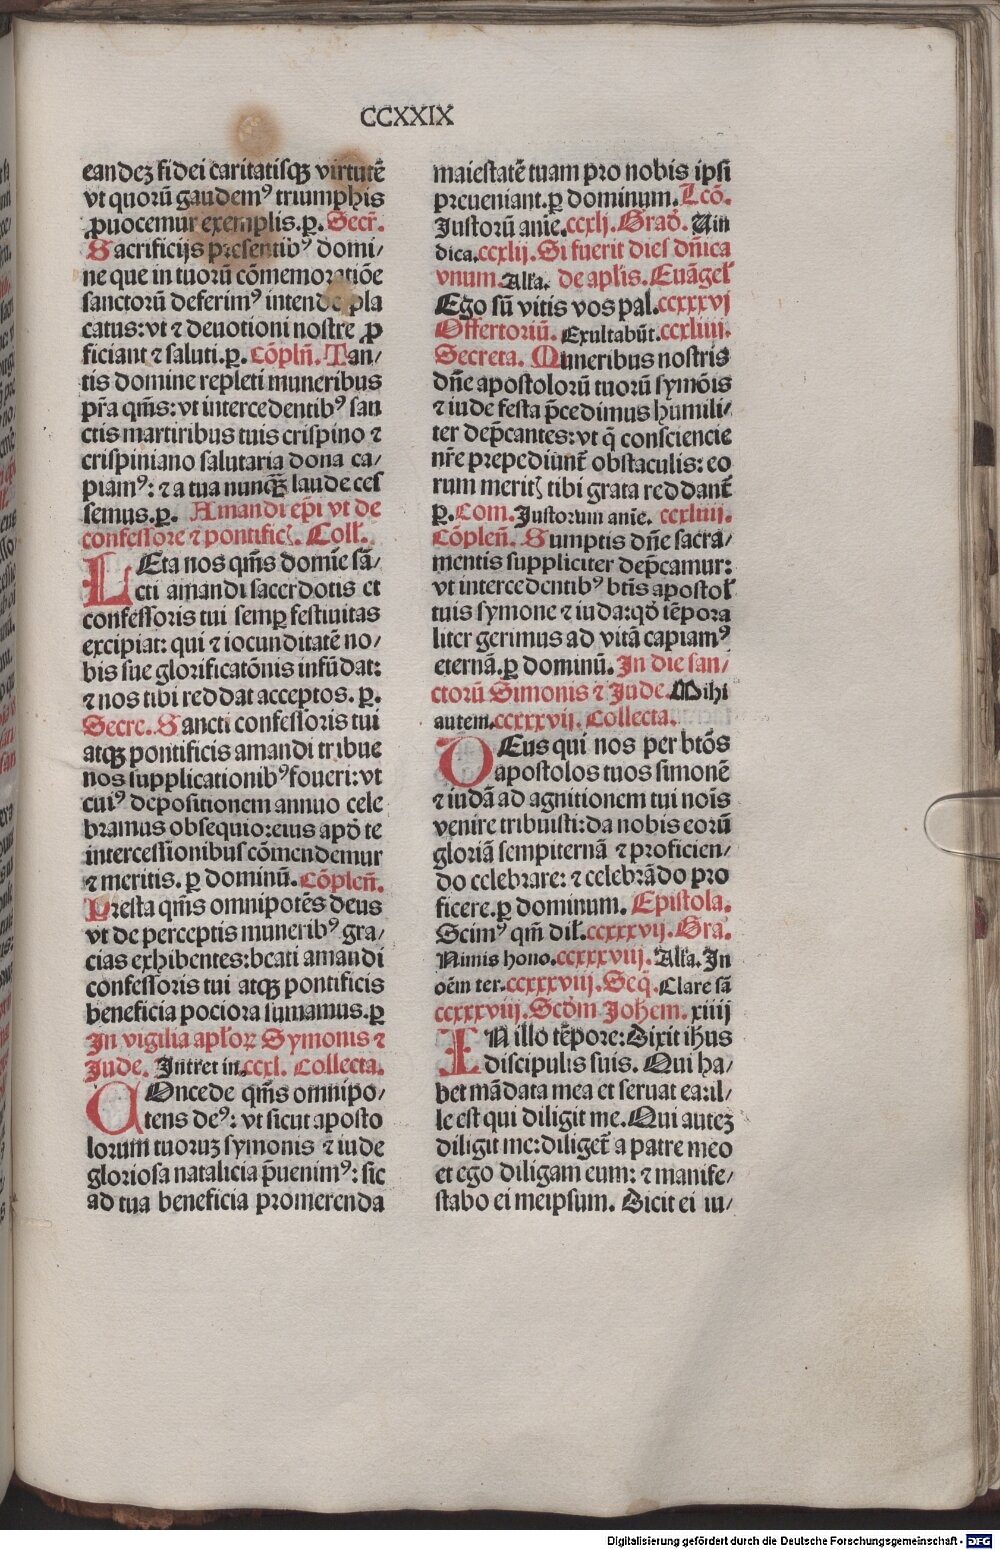 CCXXIX
eandeʒ fidei caritatisqʒ virtutē
vt quorū gaudemꝰ triumphis
ꝓuocemur exemplis.ꝑ. Secr̄.
Sacrificijs presentibꝰ domi/
ne que in tuorū cōmemoratiōe
sanctorū deferimꝰ intende pla
catus:vt ⁊ deuotioni nostre ꝓ
ficiant ⁊ saluti.ꝑ. Cōpln̄. Tan/
tis domine repleti muneribus
pr̄a qm̄s:vt intercedentibꝰ san
ctis martiribus tuis crispino ⁊
crispiniano salutaria dona ca/
piamꝰ: ⁊ a tua nunqʒ laude ces
semus.ꝑ. Amandi ep̄i vt de
confessore ⁊ pontificꝭ. Coll̄.
LEta nos qm̄s domīe sā/
cti amandi sacerdotis et
confessoris tui semꝑ festiuitas
excipiat: qui ⁊ iocunditatē no/
bis sue glorificatōnis infūdat:
⁊ nos tibi reddat acceptos. ꝑ.
Secre. Sancti confessoris tui
atqʒ pontificis amandi tribue
nos supplicationibꝰ foueri:vt
cuiꝰ depositionem annuo cele
bramus obsequio:eius apd̄ te
intercessionibus cōmendemur
⁊ meritis. ꝑ dominū. Cōplen̄.
Presta qm̄s omnipotēs deus
vt de perceptis muneribꝰ gra/
cias exhibentes:beati amandi
confessoris tui atqʒ pontificis
beneficia pociora sumamus.ꝑ
In vigilia apl'oꝝ Symonis ⁊
Jude. Intret in.ccxl. Collecta.
COncede qm̄s omnipo/
tens deꝰ: vt sicut aposto
lorum tuoruʒ symonis ⁊ iude
gloriosa natalicia p̄uenimꝰ: sic
ad tua beneficia promerenda
maiestatē tuam pro nobis ipsi
preueniant.ꝑ dominum. Lcō.
Justorū anīe.ccxlj. Grad̄. Uin
dica.ccxlij. Si fuerit dies dn̄ica
vnum. All'a. de aplīs. Euāgel'
Ego sū vitis vos pal.ccxxxvj
Offertoriū. Exultabūt.ccxliiij.
Secreta. Muneribus nostris
dn̄e apostolorū tuorū symōis
⁊ iude festa p̄cedimus humili/
ter dep̄cantes:vt q̄ consciencie
nr̄e prepediunt̄ obstaculis: eo
rum meritꝭ tibi grata reddant̄
ꝑ. Com. Justorum anīe. ccxliiij.
Cōplen̄. Sumptis dn̄e sacra/
mentis suppliciter dep̄camur:
vt intercedentibꝰ btīs apostol'
tuis symone ⁊ iuda:qd̄ tēpora
liter gerimus ad vitā capiamꝰ
eternā.ꝑ dominū. In die san/
ctorū Simonis ⁊ Jude. Mihi
autem.ccxxxvij. Collecta.
DEus qui nos per btōs
apostolos tuos simonē
⁊ iudā ad agnitionem tui noīs
venire tribuisti:da nobis eorū
gloriā sempiternā ⁊ proficien/
do celebrare: ⁊ celebrādo pro
ficere.ꝑ dominum. Epistola.
Scimꝰ qm̄ dil'.ccxxxvij. Gra.
Nimis hono.ccxxxviij. All'a. In
oēm ter.ccxxxviij. Seq̄. Clare sā
ccxxxviij. Scd̄m Joh̄em. xiiij
IN illo tēpore: Dixit ih̄us
discipulis suis. Qui ha/
bet mādata mea et seruat ea:il/
le est qui diligit me. Qui auteʒ
diligit me:diliget̄ a patre meo
et ego diligam eum: ⁊ manife/
stabo ei meipsum. Dicit ei iu/
Digitalisierung gefördert durch die Deutsche Forschungsgemeinschaft - DFG